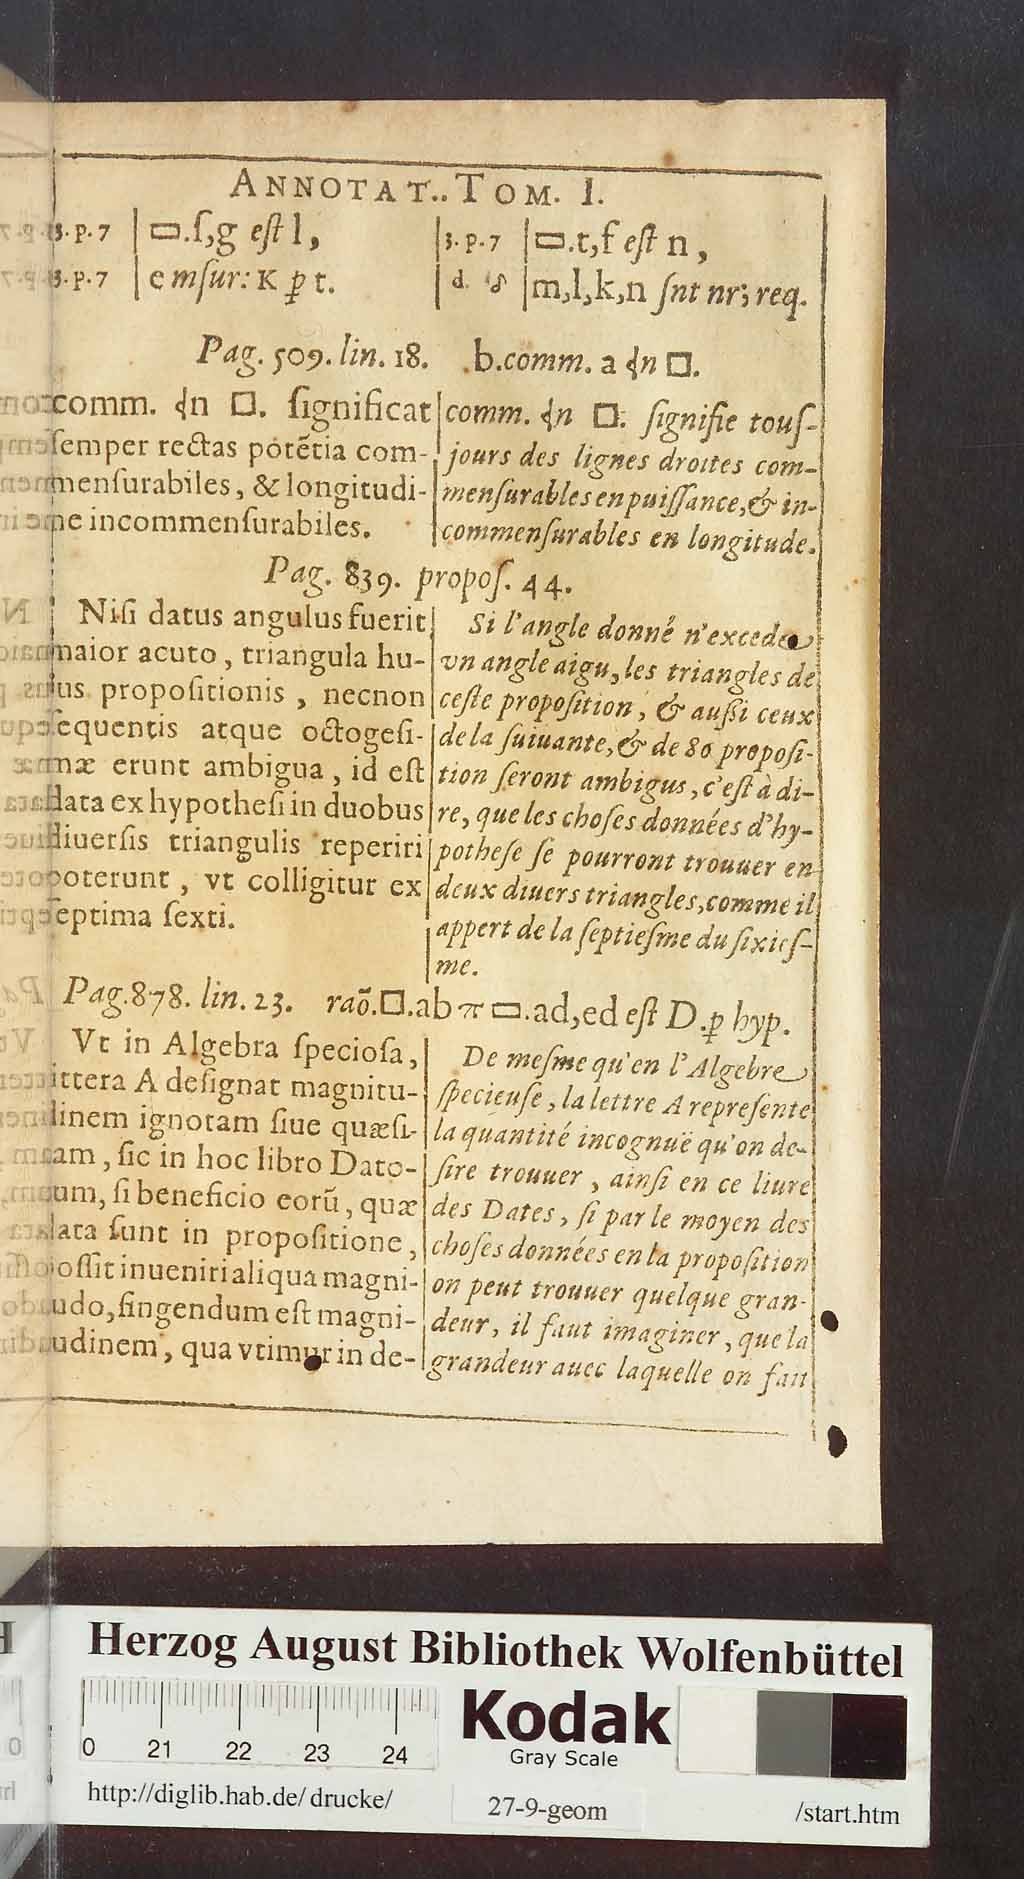 ANNOTAT.. TOM. I.
3. p. 7 | ▭.ſ,g eſt l,
3. p. 7 | e mſur: K ꝑ t.
3. p. 7 | ▭.t,f eſt n,
m,l,k,n ſnt nr; req.
Pag. 509. lin. 18. b.comm. a ⫞n □.
comm. ⫞n □. ſignificat
ſemper rectas potẽtia com-
menſurabiles, & longitudi-
ne incommenſurabiles.
comm. ⫞n □. ſignifie touſ-
jours des lignes droites com-
menſurables en puiſſance, & in-
commenſurables en longitude.
Pag. 839. propoſ. 44.
Niſi datus angulus fuerit
maior acuto, triangula hu-
ius propoſitionis, necnon
ſequentis atque octogeſi-
mæ erunt ambigua, id eſt
data ex hypotheſi in duobus
diuerſis triangulis reperiri
poterunt, vt colligitur ex
ſeptima ſexti.
Si l'angle donné n'excede
vn angle aigu, les triangles de
ceſte propoſition, & auſſi ceux
de la ſuiuante, & de 80 propoſi-
tion ſeront ambigus, c'eſt à di-
re, que les choſes données d'hy-
potheſe ſe pourront trouuer en
deux diuers triangles, comme il
appert de la ſeptieſme du ſixieſ-
me.
Pag. 878. lin. 23. raõ.□.ab π ▭.ad,ed eſt D.ꝑ hyp.
Vt in Algebra ſpecioſa,
littera A deſignat magnitu-
dinem ignotam ſiue quæſi-
tam, ſic in hoc libro Dato-
rum, ſi beneficio eorũ, quæ
data ſunt in propoſitione,
poſſit inueniri aliqua magni-
tudo, fingendum eſt magni-
tudinem, qua vtimur in de-
De meſme qu'en l'Algebre
ſpecieuſe, la lettre A repreſente
la quantité incognuë qu'on de-
ſire trouuer, ainſi en ce liure
des Dates, ſi par le moyen des
choſes données en la propoſition
on peut trouuer quelque gran-
deur, il faut imaginer, que la
grandeur auec laquelle on fait
Herzog August Bibliothek Wolfenbüttel
Kodak
Gray Scale
0 21 22 23 24
http://diglib.hab.de/drucke/
27-9-geom
/start.htm